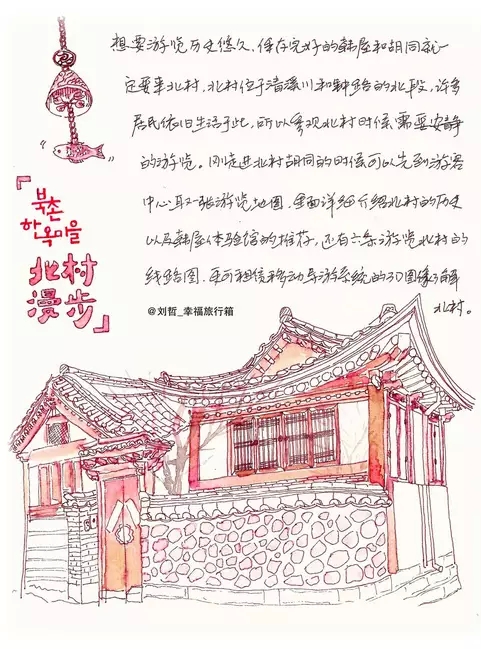 想要游览历史悠久，保存完好的韩屋和胡同就一
定要来北村，北村位于清溪川和钟路的北段，许多
居民依旧生活于此，所以参观北村时候需要安静
的游览。刚走进北村胡同的时候可以先到游客
中心取一张游览地图，里面详细介绍北村的历史
以及韩屋体验馆的推荐，还有六条游览北村的
线路图，更可租借移动导游系统的3D图像了解
北村。
「북촌
한옥마을
北村
漫步」
@刘哲_幸福旅行箱